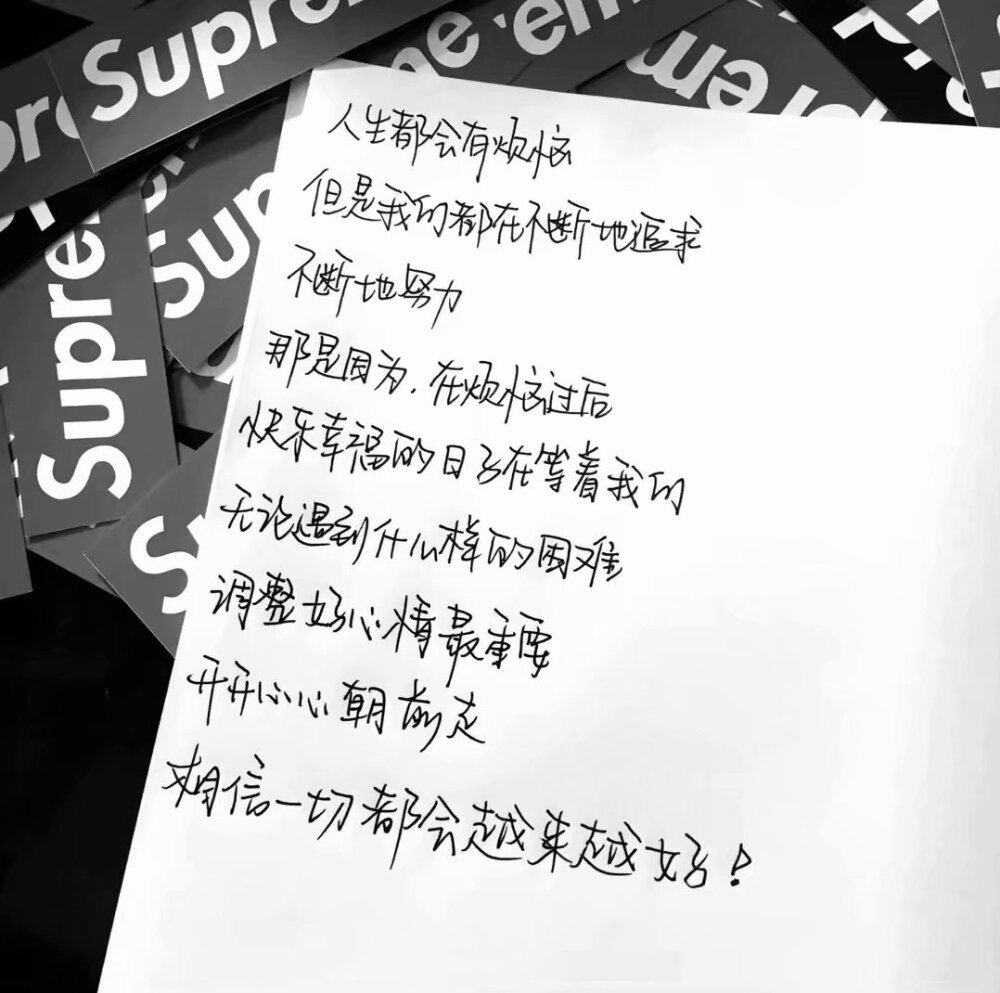 Supreme
Supre
preme
Supre
Supreme
人生都会有烦恼
但是我们都在不断地追求
不断地努力
那是因为,在烦恼过后
快乐幸福的日子在等着我们
无论遇到什么样的困难
调整好心情最重要
开开心心朝前走
相信一切都会越来越好!